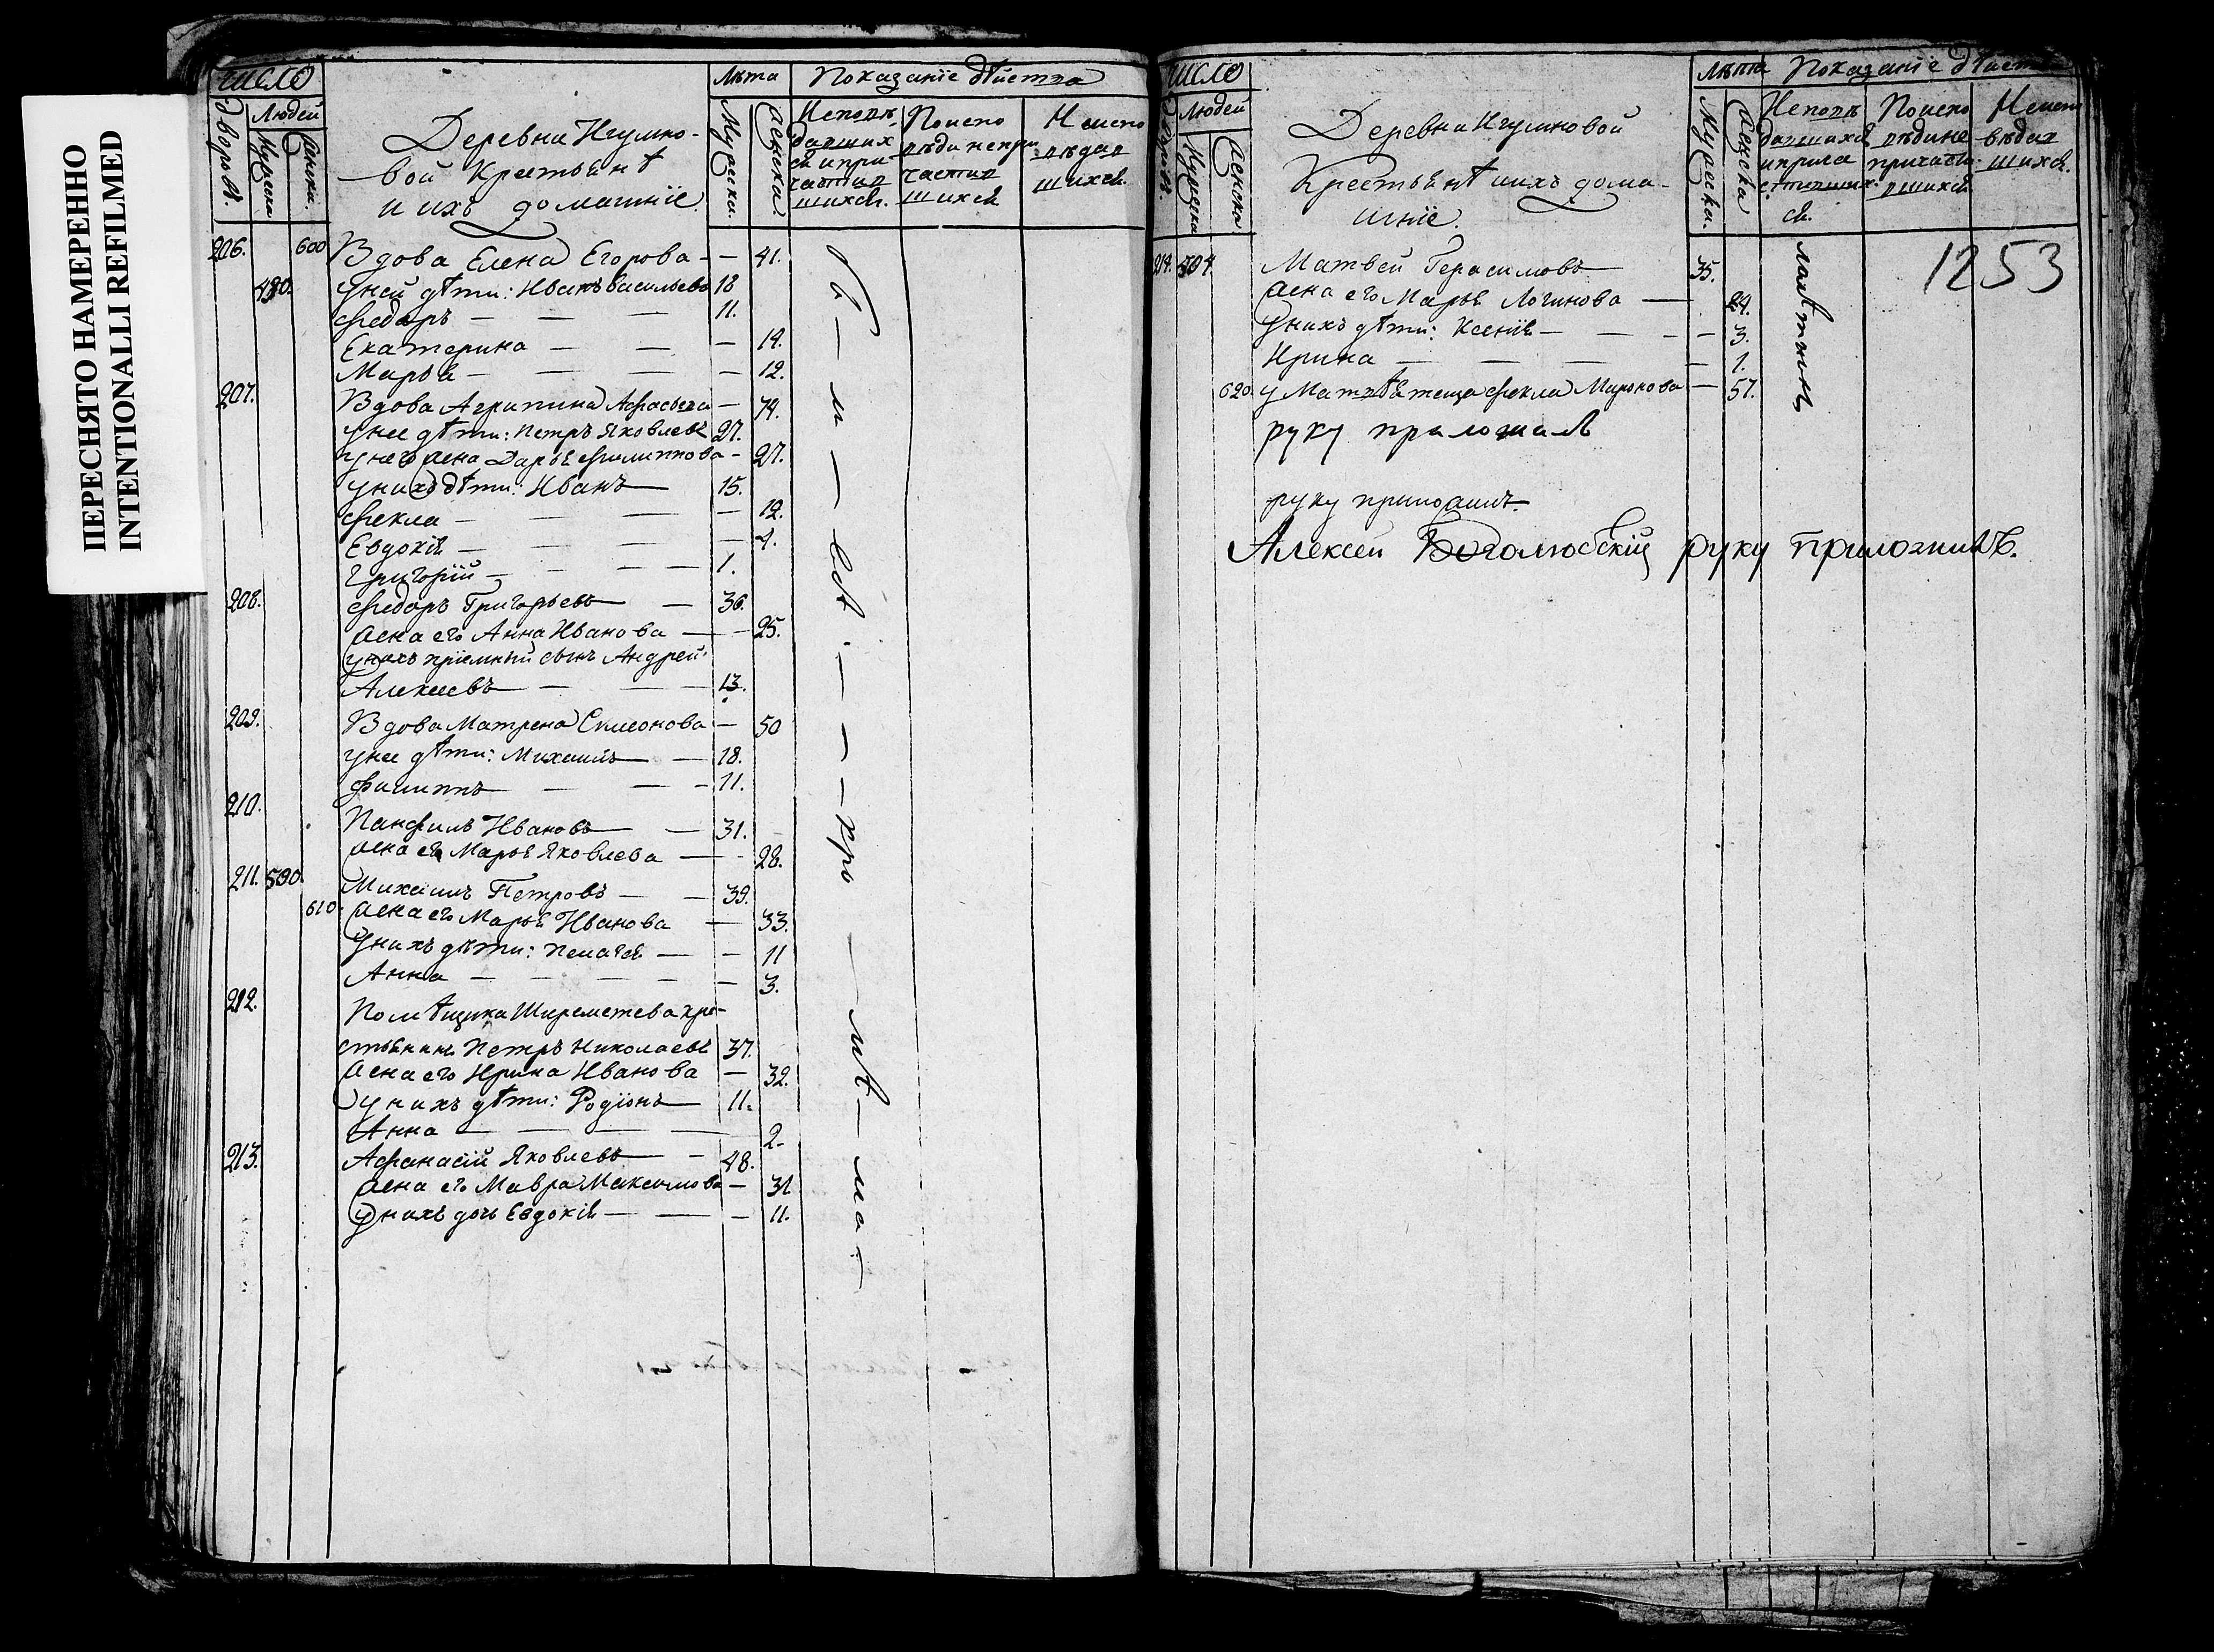 ПЕРЕСНЯТО НАМЕРЕННО
INTENTIONALLI REFILMED
Число
Людей
Дворовъ.
Мужеска
Женска.
Деревни Игумно-
вой Крестьянѣ
и ихъ домашніе.
Лѣта
Мужеска.
Женска.
Показаніе дѣйства
Исповѣ
давших
ся и при-
частив
шихся.
По испо
вѣди не при
частив
шихся
Не испо
вѣдав
шихся.
206. 600 Вдова Елена Егорова - — 41.
490. У ней дѣти: Иванъ Васильевъ 18
Ѳедоръ — — — 11.
Екатерина — — — 14.
Марья — — — — 12.
207. Вдова Агрипина Афасьева — 74.
У нее дѣти: Петръ Яковлевъ 27.
у него жена Дарья Филиппова - 27.
у нихъ дѣти: Иванъ — 15.
Ѳекла — — — — 12.
Евдокія — — — — 4.
Григорій — — — 1.
208. Ѳедоръ Григорьевъ — 36.
Жена его Анна Иванова — — 25.
У нихъ пріемный сынъ Андрей
Алексеевъ — — — 13.
209. Вдова Матрена Симеонова — 50
У нее дѣти: Михаилъ — 18.
Филиппъ — — - 11.
210. Панфилъ Ивановъ — 31.
Жена его Марья Яковлева — - 28.
211. 500. Михаилъ Петровъ — — 39.
610. Жена его Марья Иванова — 33.
У нихъ дѣти: Пелагея — — 11
Анна — — — — 3.
212. Помѣщика Шереметева кре-
стьянинъ Петръ Николаевъ 37.
Жена его Ирина Иванова — 32.
У нихъ дѣти: Родіонъ — 11.
Анна — — — — 2.
213. Афанасій Яковлевъ — - 48.
Жена его Мавра Максимова — 31
У нихъ дочь Евдокія — — — 11.
Число
Людей
Мужеска
Женска
Деревни Игумновой
Крестьянѣ и ихъ дома-
шніе.
Лѣта
Мужеска.
Женска
Показаніе дѣйства
Исповѣ
давшихся
и прича
стивших
ся.
По испо
вѣди не
причасти
вшихся
Не испо
вѣдав
шихся.
1253
214. 504. Матвей Герасимовъ — 35.
Жена его Марья Логинова — 24.
У нихъ дѣти: Ксенія — — - — 3.
Ирина — — — — 1.
620. у Матвѣя теща Ѳекла Миронова — 57.
руку приложилъ
руку приложилъ.
Алексей Боголюбскій руку приложилъ.